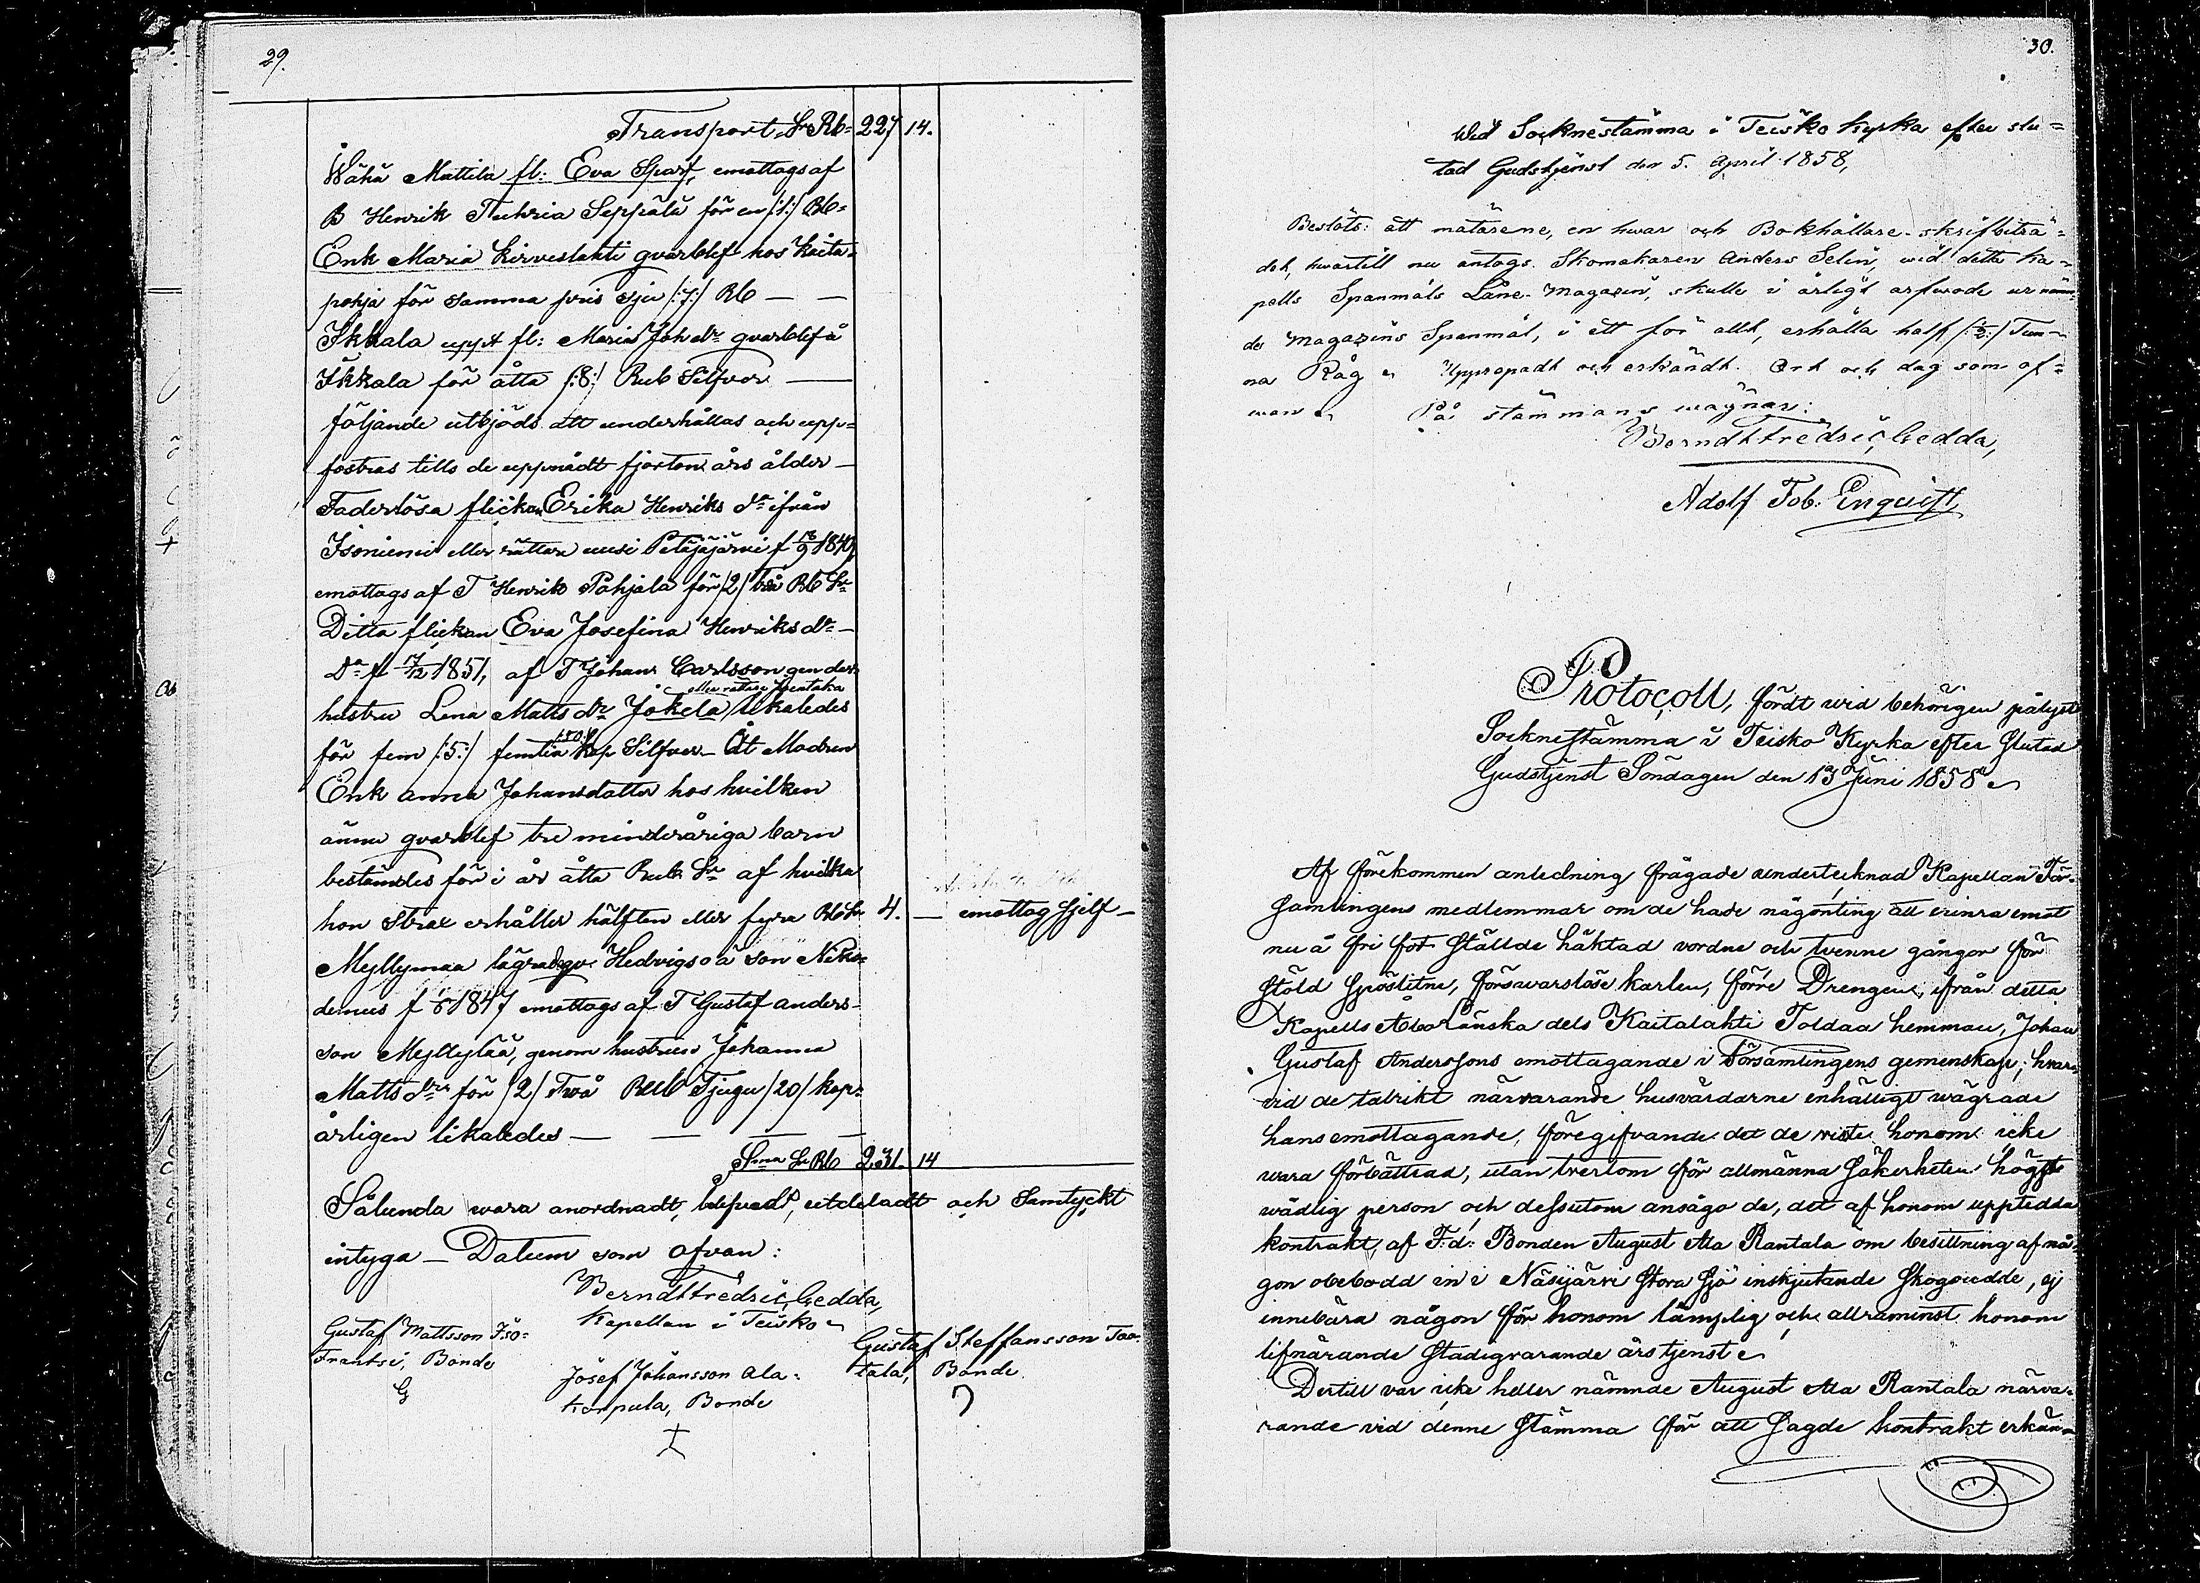 29.
Transport Sr Rb= 227 14.
Wähä Mattila fl: Eva Sparf, emottags af
B Henrik Tuhria Seppälä för en /:1:/ Rb=
Enk Maria Kirveslahti qvarblef hos Kaita=
pohja för samma pris sju /:7:/ Rb — —
Ikkala uppt fl: Maria Joh dr qvarblef å
Ikkala för åtta /:8:/ Rub Silfver —
följande utbjöds att underhållas och upp=
fostras tills de uppnådt fjorton års ålder —
Faderlösa flickan Erika Henriks dr ifrån
Isoniemi eller rättare uusi Petäjäjärvi f 18/9 1840,
emottags af T Henrik Pohjala för /2/ två Rb Sr
Ditta flickan Eva Josefina Henriks dr —
Dr fl 7/12 1851, af T Johan Carlsson genom des
hustru Lena Matts dr Jokela likaledes
för fem /:5:/ femtio /:50:/ kop Silfver — Åt Modren
Enk Anna Johansdotter hos hvilken
ännu qvarblef tre minderåriga barn
bestämdes för i år åtta Rub Sr af hvilka
hon strax erhåller hälften eller fyra Rb Sr 4. — emottog sjelf —
Myllymaa lägrade qv. Hedvigs o ä son Niko=
demus f 1847 emottags af T Gustaf Anders=
son Myllylää, genom hustrun Johanna
Matts dr för /2/ Två Rub Tjugu /20/ kop=
årligen likaledes — — — —
Sma Sr Rb 231. 14
Sålunda wara anordnadt, utdeladt och Samtyckt
intyga — Datum som ofvan:
Berndt Fredric Gedda,
Kapellan i Teisko
Gustaf Mattsson Iso=
Frantsi, Bonde
G
Josef Johansson Ala=
Korpula, Bonde
Gustaf Steffansson Taa=
tala, Bonde
30.
Wid Socknestämma i Teisko Kyrka efter slu=
tad Gudstjenst den 5. April 1858,
Beslöts: att mätarene, en hwar och Bokhållare-skrifbiträ=
det, hwartill nu antogs Skomakaren Anders Selin, wid detta Ka=
pells Spanmåls Låne-Magazin, skulle i årligt arfwode ur näm=
de Magazins Spanmål, i ett för allt, erhålla half /:½:/ Tun=
na Råg. Upprepadt och erkändt. Ort och dag som of=
wan. På stämmans wägnar:
Berndt Fredric Gedda,
Adolf Tob. Enquist,
Protocoll, fördt wid behörigen pålyst
Socknestämma i Teisko Kyrka efter slutad
Gudstjenst Söndagen den 13 Juni 1858.
Af förekommen anledning frågade undertecknad Kapellan För=
samlingens medlemmar om de hade någonting att erinra emot
nu å fri fot ställde häktad vordne och tvenne gångor för
stöld spöslitne, förswarslöse karlen, förre Drengen, ifrån detta
Kapells Aboränska dels Kaitalahti Toldaa hemman, Johan
Gustaf Anderssons emottagande i Församlingens gemenskap; hvar=
vid de talrikt närvarande husvärdarne enhälligt wägrade
hans emottagande, föregifvande det de wiste honom icke
wara förbättrad, utan tvertom för allmänna säkerheten högst
wådlig person och dessutom ansågo de, det af honom uppledda
kontrakt, af F:d: Bonden August Ala Rantala om besittning af nå=
gon obebodd en i Näsijärvi stora sjö inskjutande skogsudde, ej
innebära någon för honom lämplig och allraminst honom
lifnärande stadigvarande årstjenst.
Dertill var icke heller nämnde August Ala Rantala närva=
rande vid denne stämma för att sagde kontrakt erkän=